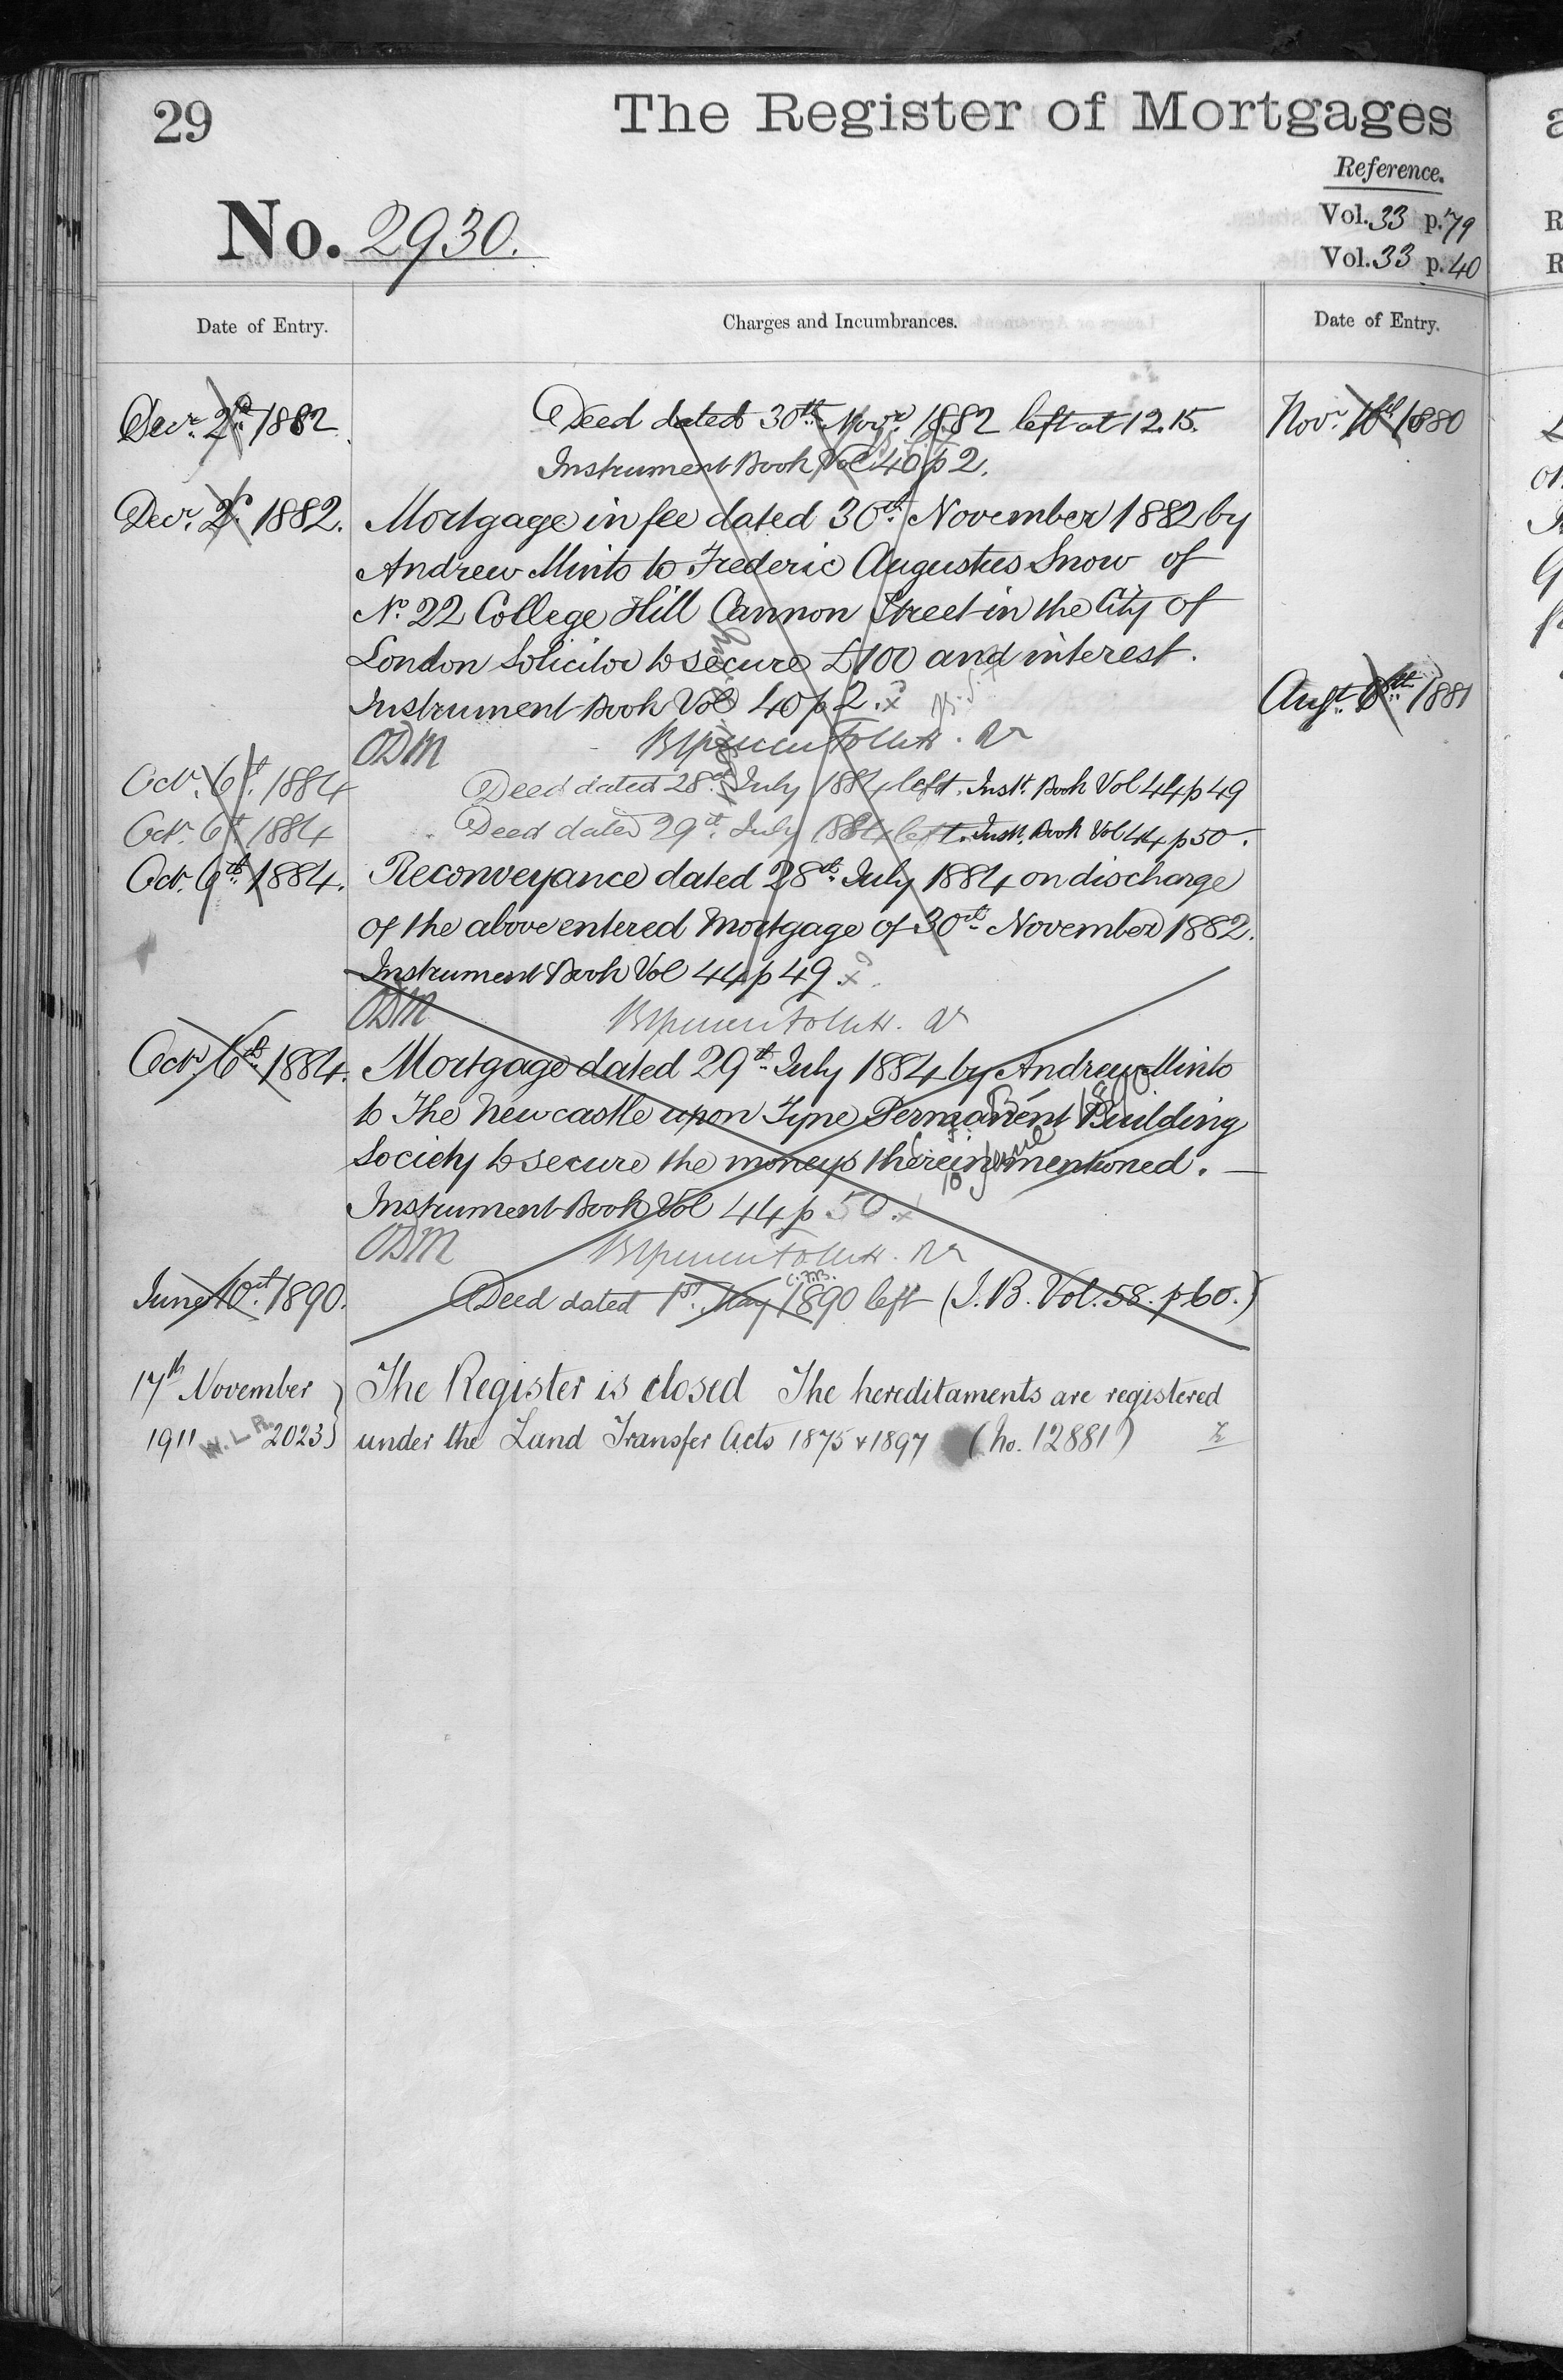 29
The Register of Mortgages
Reference.
No. 2930.
Vol. 33 p. 79
Vol. 33 p. 40
Date of Entry.
Charges and Incumbrances.
Date of Entry.
Decr. 2d. 1882
Deed dated 30th. Novr. 1882 left at 12.15.
Nov. 10th 1880
Instrument Book Vol 40 p 2.
Decr. 2d. 1882.
Mortgage in fee dated 30th. November 1882 by
Andrew Minto to Frederic Augustus Snow of
No. 22 College Hill Cannon Street in the City of
London Solicitor to secure £100 and interest.
Instrument Book Vol 40 p 2.
Augt. 6th. 1881
ODM
Oct. 6th. 1884
Deed dated 28th. July 1884 left. Inst. Book Vol 44 p 49
Oct. 6th. 1884
Deed dated 29th. July 1884 left. Inst. Book Vol 44 p 50.
Oct. 6th. 1884.
Reconveyance dated 28th. July 1884 on discharge
of the above entered Mortgage of 30th. November 1882.
Instrument Book Vol 44 p 49
ODM
Oct. 6th. 1884.
Mortgage dated 29th. July 1884 by Andrew Minto
to The Newcastle upon Tyne Permanent Building
Society to secure the moneys therein mentioned.
10 June 1890
Instrument Book Vol 44 p 50.
ODM
June 10th. 1890.
Deed dated 1st. May 1890 left (I.B. Vol. 58. p 60.)
17th November
The Register is closed The hereditaments are registered
1911 W.L.R. 2023
under the Land Transfer Acts 1875 & 1897 (No. 12881)